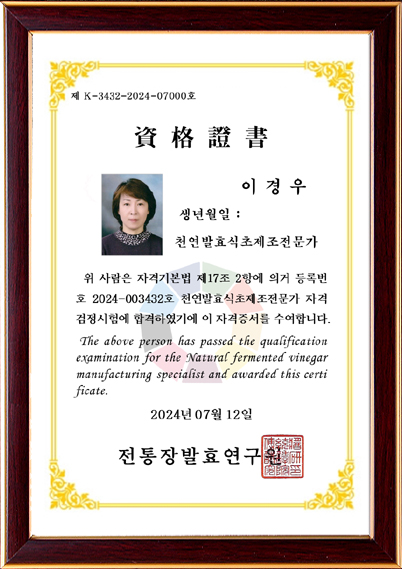 제 K-3432-2024-07000호
資格證書
이경우
생년월일 :
천연발효식초제조전문가
위 사람은 자격기본법 제17조 2항에 의거 등록번
호 2024-003432호 천연발효식초제조전문가 자격
검정시험에 합격하였기에 이 자격증서를 수여합니다.
The above person has passed the qualification
examination for the Natural fermented vinegar
manufacturing specialist and awarded this certi
ficate.
2024년 07월 12일
전통장발효연구원